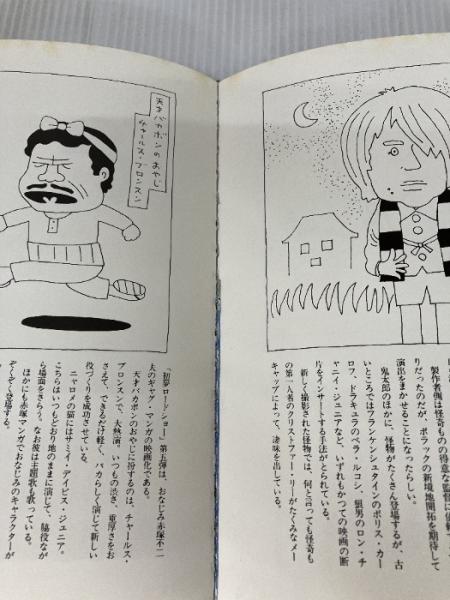 製作者側は怪奇ものの得意な監督に依頼
りだったのだが、ポラックの新境地開拓を期待して
演出をまかせることになったらしい。
鬼太郎のほかに、怪物がたくさん登場するが、古
いところではフランケンシュタインのボリス・カー
ロフ、ドラキュラのベラ・ルゴシ、狼男のロン・チ
ャニイ・ジュニアなど、いずれもかつての映画の断
片をインサートする手法がとられている。
新しく撮影された怪物では、何と言っても怪奇も
の第一人者のクリストファー・リーがたくみなメー
キャップによって、凄味を出している。
天才バカボンのおやじ
チャールス・ブロンスン
「初夢ロードショー」第五弾は、おなじみ赤塚不二
夫のギャグ・マンガの映画化である。
天才バカボンのおやじに扮するのは、チャールス・
ブロンスンで、大熱演。いつもの渋さ、重厚さをお
さえて、できるだけ軽く、バカらしく演じて新しい
役づくりを成功させている。
ニャロメの猫にはサミイ・デイビス・ジュニア。
こちらはいつもどおり地のままに演じて、脇役なが
ら場面をさらう。なお彼は主題歌も歌っている。
ほかにも赤塚マンガでおなじみのキャラクターが
ぞくぞく登場する。